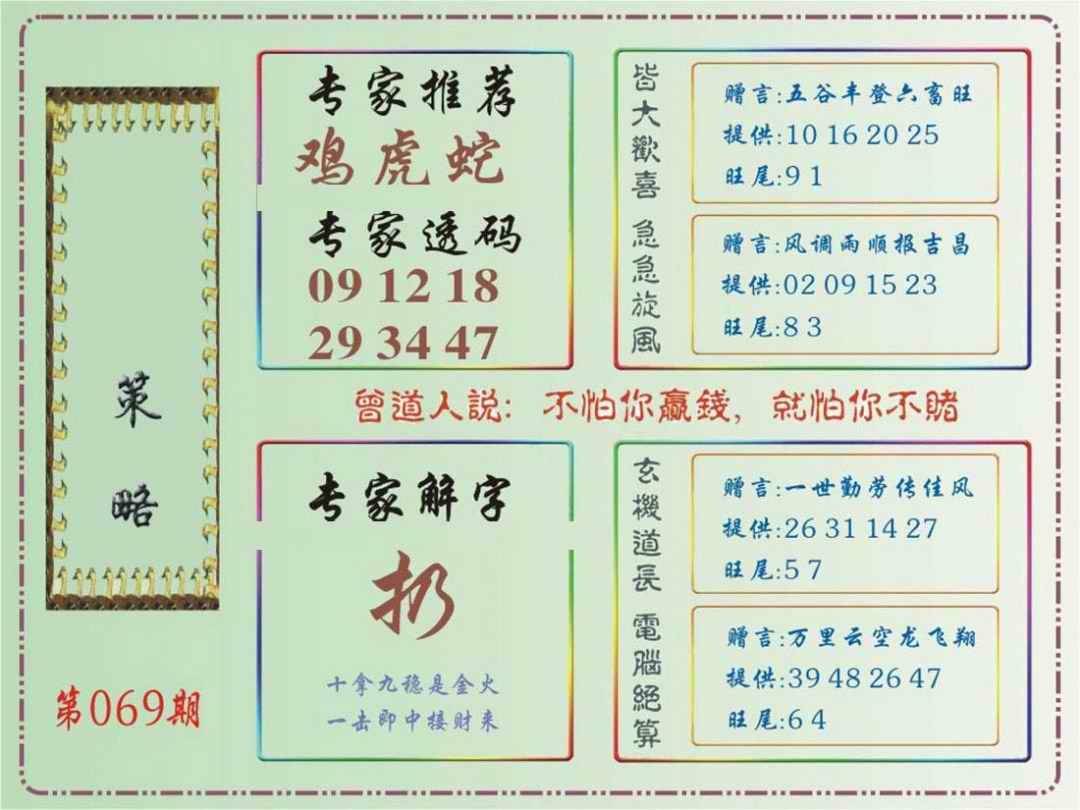 策
略
第069期
专家推荐
鸡虎蛇
专家透码
09 12 18
29 34 47
皆大歡喜
赠言:五谷丰登六畜旺
提供:10 16 20 25
旺尾:9 1
急急旋風
赠言:风调雨顺报吉昌
提供:02 09 15 23
旺尾:8 3
曾道人説: 不怕你贏錢, 就怕你不賭
专家解字
扔
十拿九稳是金火
一击即中接财来
玄機道長
赠言:一世勤劳传佳风
提供:26 31 14 27
旺尾:5 7
電腦絕算
赠言:万里云空龙飞翔
提供:39 48 26 47
旺尾:6 4